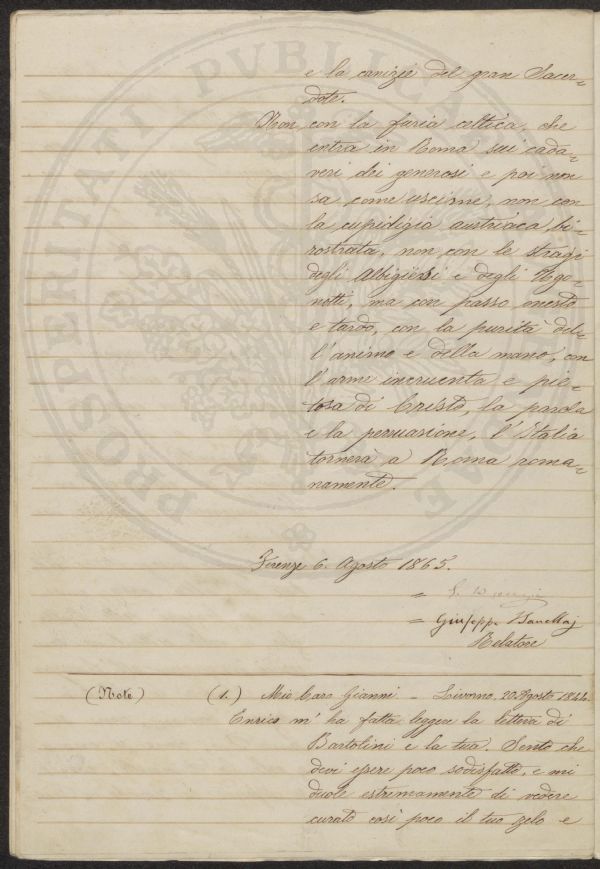 e la canizie del gran Sacer=
dote.
Non con la furia celtica, che
entra in Roma sui cada=
veri dei generosi e poi non
sa come uscirne, non con
la cupidigia austriaca, bi=
rostrata, non con le stragi
degli Albigiesi e degli Ugo=
notti, ma con passo onesto
e tardo, con la purità del=
l'animo e della mano, con
l'arme incruenta e pie=
tosa di Cristo, la parola
e la persuasione, l'Italia
tornerà a Roma roma=
namente.
Firenze 6. Agosto 1865.
=
= Giuseppe
Relatore
(Note) (1.) Mio Caro Gianni. - Livorno, 20 Agosto 1844.
Enrico m'ha fatta leggere la lettera di
Bartolini e la tua. Sento che
devi essere poco sodisfatto, e mi
duole estremamente di vedere
curato così poco il tuo zelo e
PROSPERITATI PVBLICAE